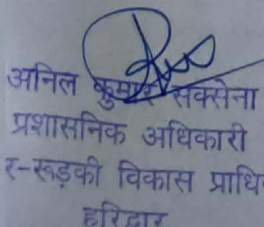 अनिल कुमार सक्सेना
प्रशासनिक अधिकारी
र-रूड़की विकास प्राधि
हरिद्वार